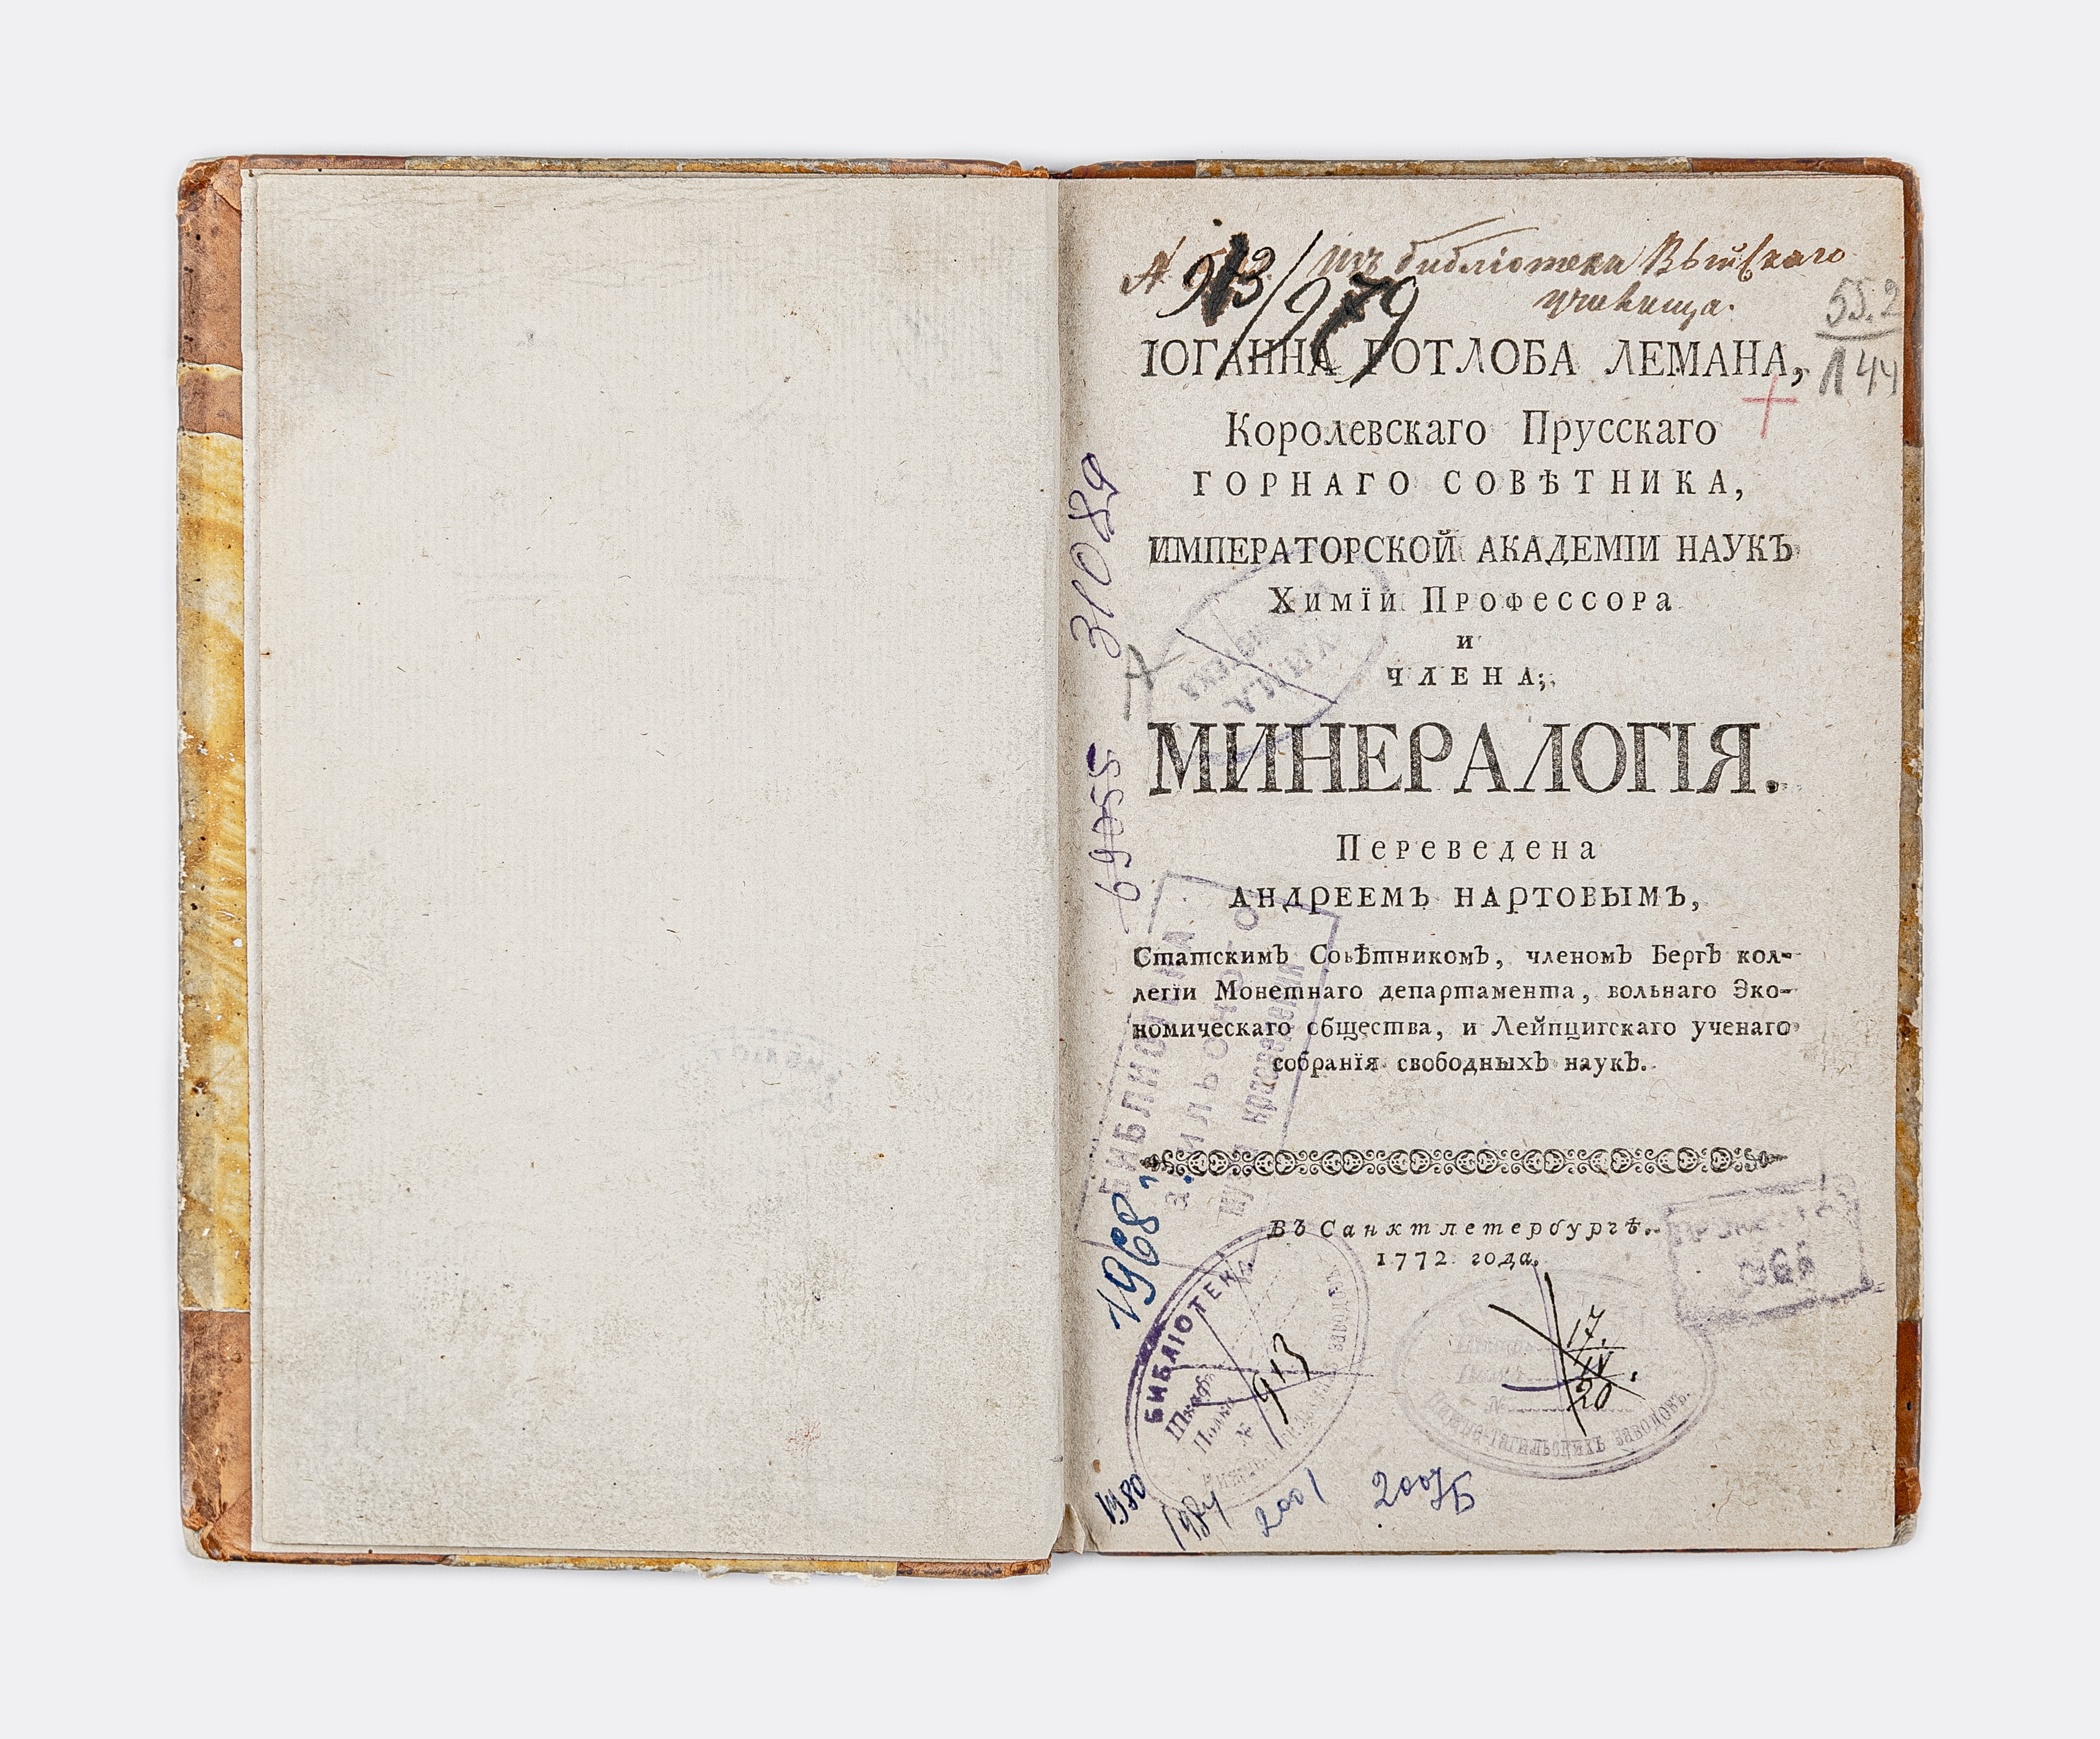 913/979 изъ библіотеки Выйскаго
училища.
55.2
Л 44
ІОГАННА ГОТЛОБА ЛЕМАНА,
Королевскаго Прусскаго
ГОРНАГО СОВѢТНИКА,
ИМПЕРАТОРСКОЙ АКАДЕМІИ НАУКЪ
Химїи Профессора
и
ЧЛЕНА;
МИНЕРАЛОГІЯ.
Переведена
АНДРЕЕМЪ НАРТОВЫМЪ,
Статскимъ Совѣтникомъ, членомъ Бергъ кол-
легїи Монетнаго департамента, вольнаго Эко-
номическаго общества, и Лейпцигскаго ученаго
собранїя свободныхъ наукъ.
Въ Санктпетербургѣ.
1772 года.
31089
69055
БИБЛИОТЕКА
краеведения
1968
БИБЛІОТЕКА
Шкафъ
Полка
№ 913
17.
IV.
20
№
Нижне-Тагильскихъ заводовъ.
1966
1980
1984
2001
2007